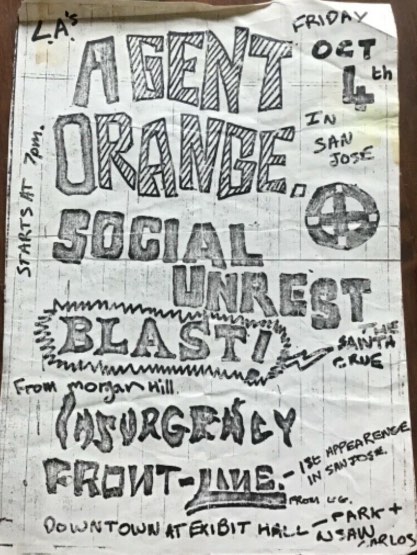 L.A.'s
FRIDAY
OCT
4th
IN
SAN
JOSE
AGENT
ORANGE.
STARTS AT 7pm.
SOCIAL
UNREST
BLAST!
THE
SANTA
CRUE
From morgan Hill.
INSURGENCY
FRONT-LINE. - 1ST APPEARENCE
IN SAN JOSE.
FROM L.G.
DOWNTOWN AT EXIBIT HALL - PARK +
CARLOS